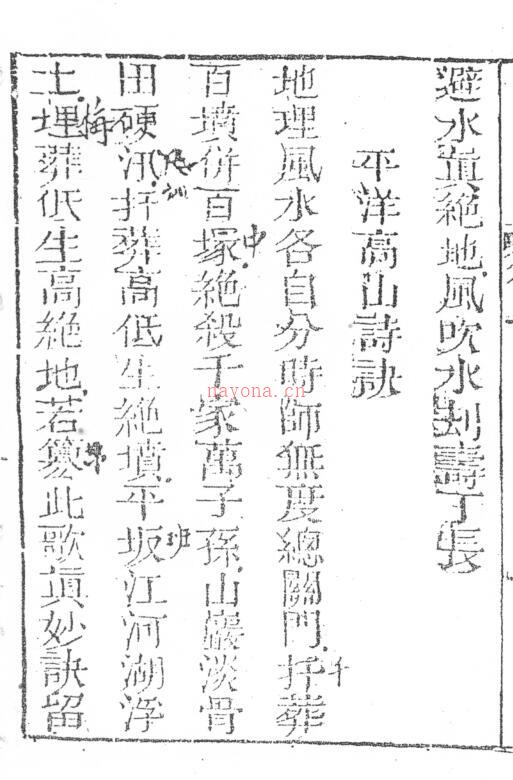 避水葉絶地風吹水刦壽丁長
平洋高山詩訣
地理風水各自分時師無度總關門扦葬
百墳併百塚絶殺千家萬子孫山巖淡骨
田硬汛扦葬高低生絶墳平坂江河湖浮
土埋葬低生高絶地若纂此歌眞妙訣留
nayona.cn